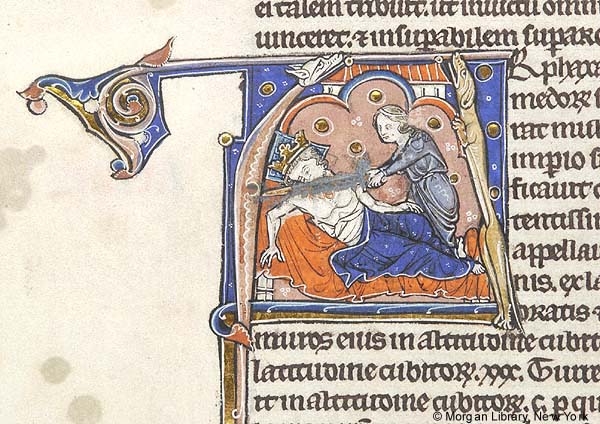 ei talem tribuit. ut inuictu omni
uinceret. & insupabilem supare
Rphaxa
medorū s
rat mul
impio s
ficauit c
tentissi
appellau
nis. ex la
dratis &
muros eius in altitudine cubit
latitudine cubitorū. xxx. Turre
it in altitudine cubitorū. c. p qu
© Morgan Library, New York